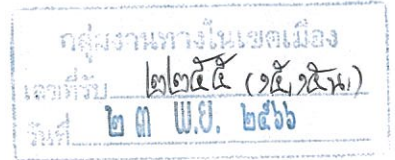 กลุ่มงานทางในเขตเมือง
เลขที่รับ ๒๒๕๕ (๑๕.๑๕น.)
วันที่ ๒๓ พ.ย. ๒๕๖๖